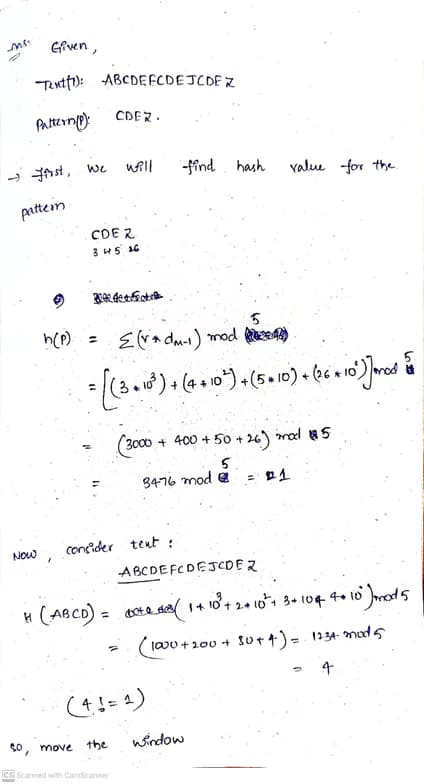 Ans:
Given,
Text(T): ABCDEFCDEJCDEZ
Pattern(P): CDEZ.
→ First, we will find hash value for the
pattern
CDEZ
3 4 5 26
h(P) = Σ(v * dm-1) mod 5
= [(3 * 10³) + (4 * 10²) + (5 * 10) + (26 * 10⁰)] mod 5
= (3000 + 400 + 50 + 26) mod 5
= 3476 mod 5 = 1
Now, consider text :
ABCDEFCDEJCDEZ
H (ABCD) = (1 * 10³ + 2 * 10² + 3 * 10 + 4 * 10⁰) mod 5
= (1000 + 200 + 30 + 4) = 1234 mod 5
= 4
(4 != 1)
so, move the window
CS Scanned with CamScanner